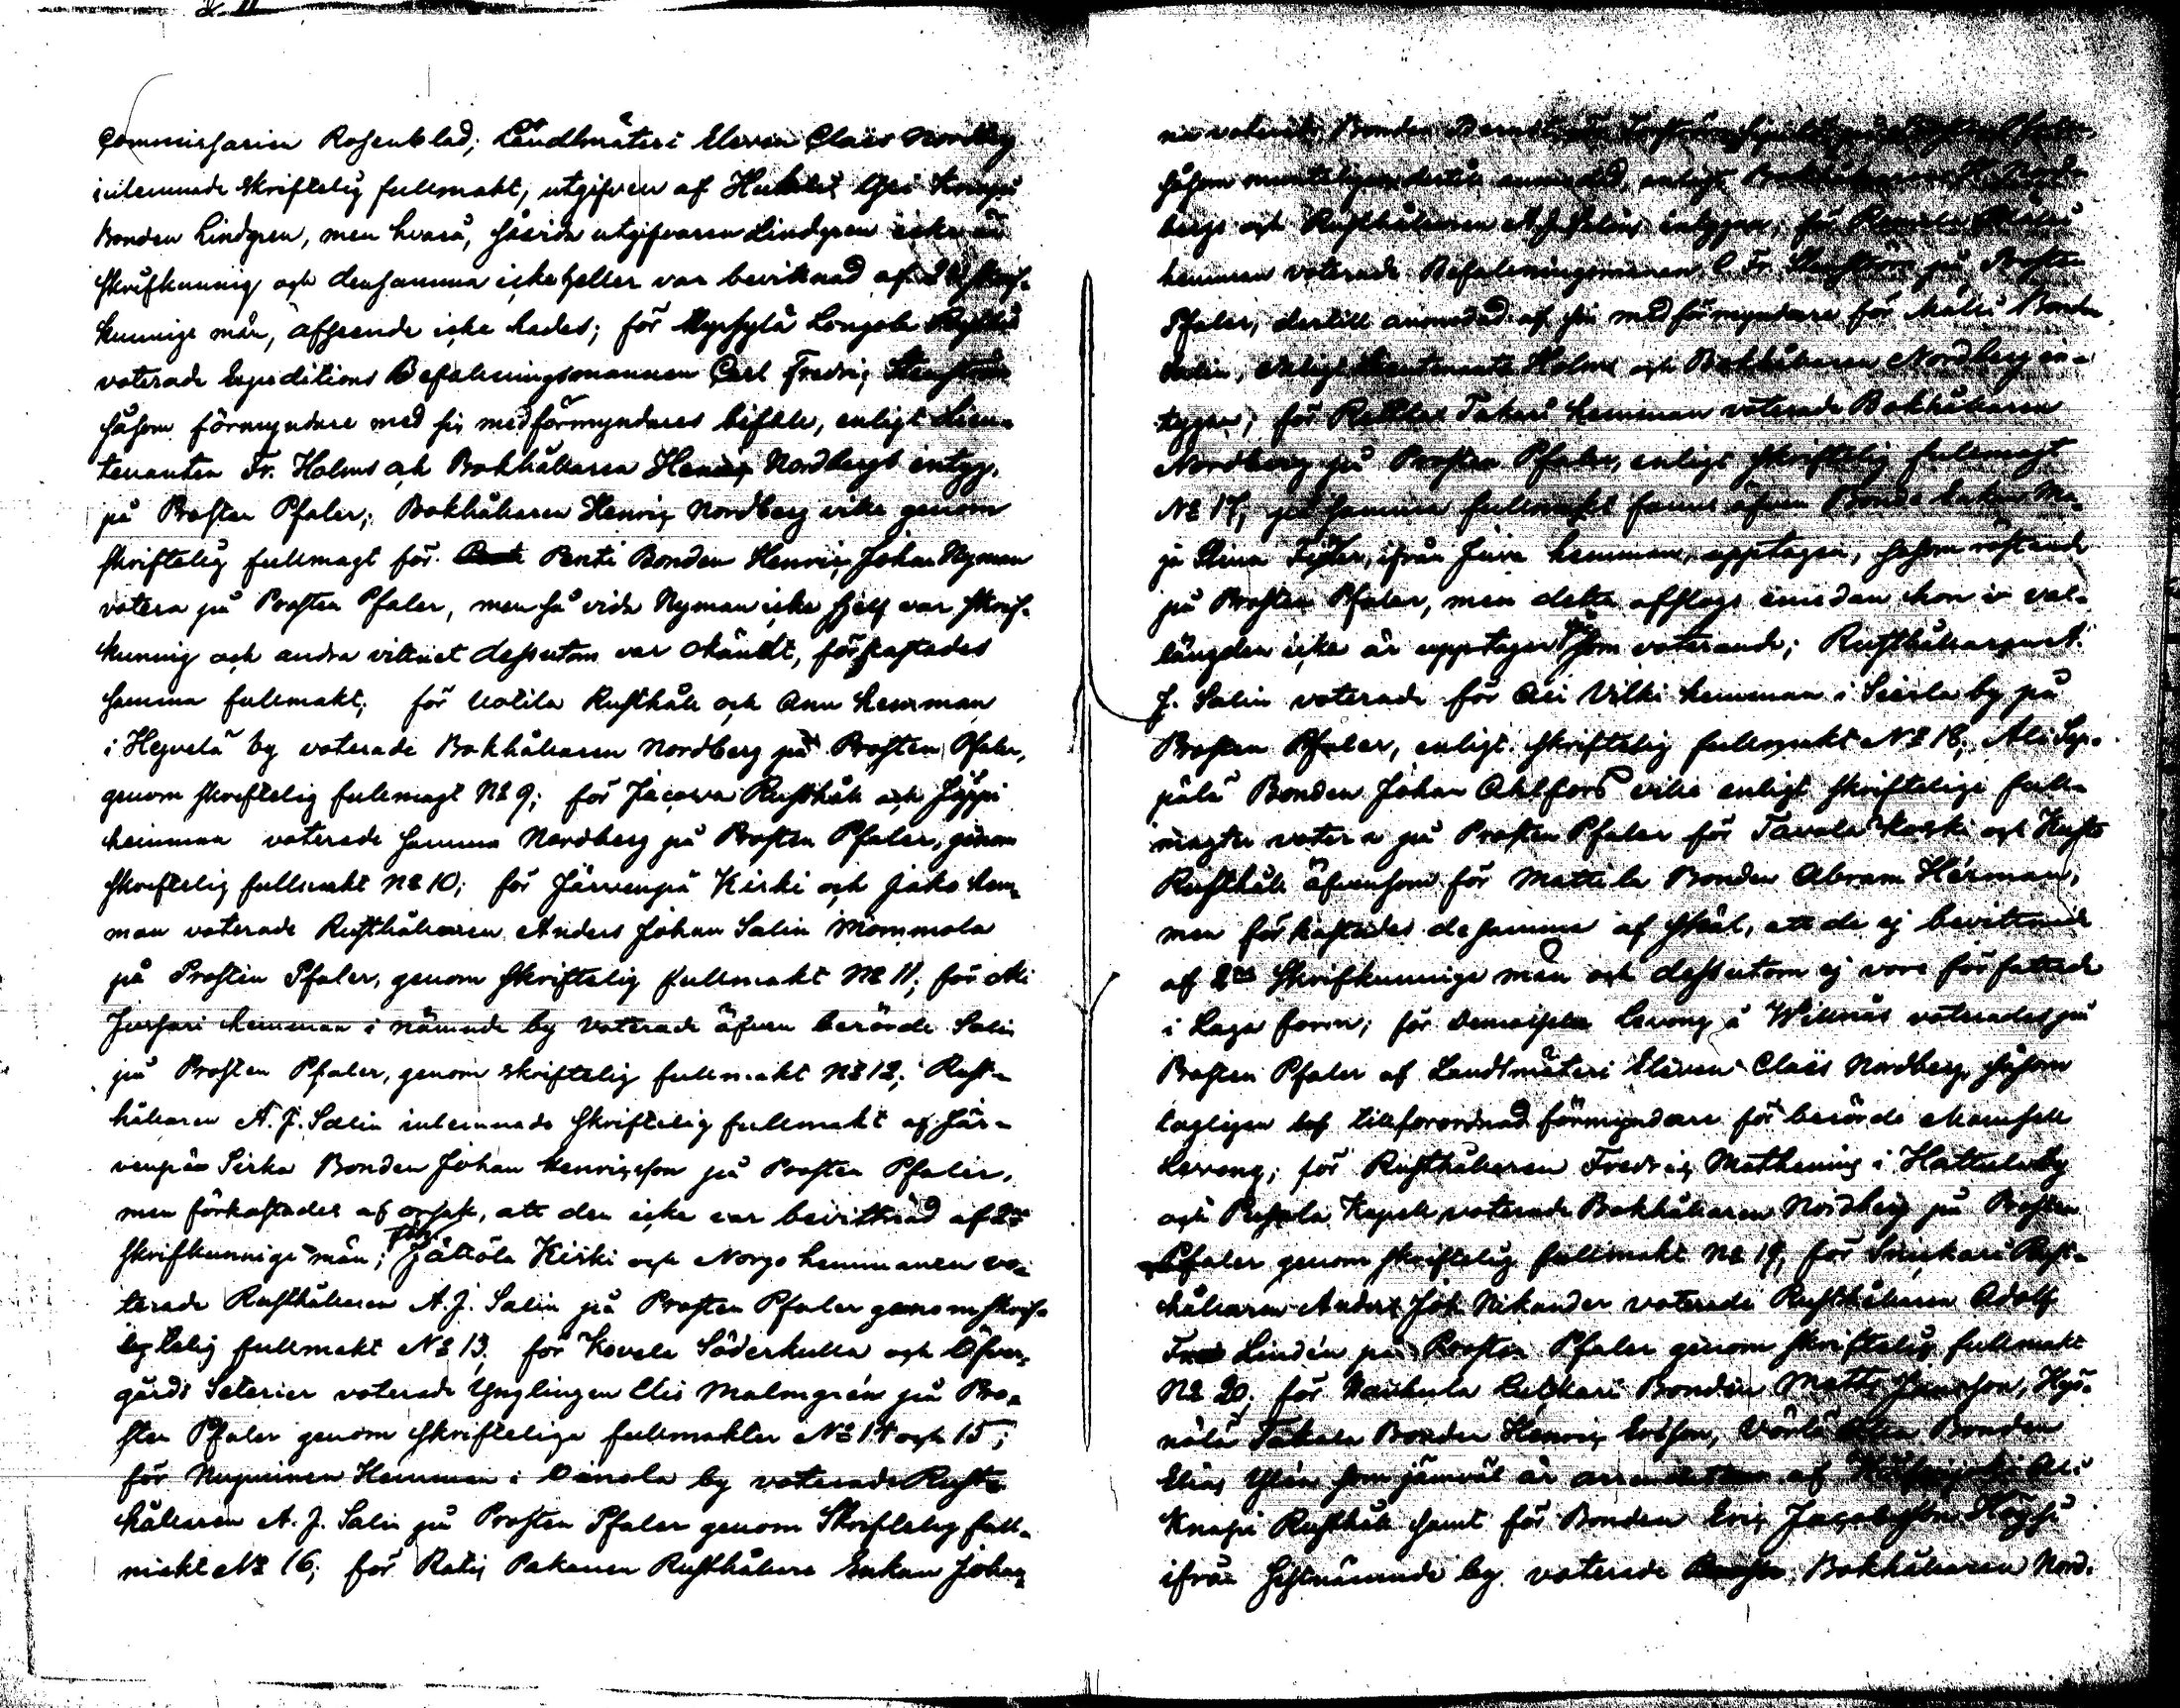 Commissarien Rosenblad; Landtmäteri Eleven Claës Nordberg
inlemnade skriftelig fullmakt, utgifven af
Bonden Lindgren, men hvarå, såvida utgifvaren Lindgren icke är
skrifkunnig och densamma icke heller var bevitnad af 2ne skrif-
kunnige män, afseende icke hades; för Myrskylä Longola
voterade Expeditions Befallningsmannen Carl Fredric Stenström
såsom förmyndare med sin medförmyndares bifall, enligt Lieu-
tenanten Fr. Holms och Bokhållaren Henric Nordbergs intyg,
på Prosten Pfaler; Bokhållaren Henric Nordberg ville genom
skriftelig fullmagt för Pentti Bonden Henric Johan Nyman
votera på Prosten Pfaler, men så vida Nyman icke sjelf var skrif-
kunnig och andra vittnet dessutom var okändt, förkastades
samma fullmakt; för Uotila Rusthåll och Anu hemman
i Hegvelä by voterade Bokhållaren Nordberg på Prosten Pfaler,
genom skriftelig fullmagt No 9; för Jacova Rusthåll och Jäppi
hemman voterade samma Nordberg på Prosten Pfaler, genom
skriftelig fullmakt No 10; för Järvenpä Kirki och Jako hem-
man voterade Rusthållaren Anders Johan Salin Mommola
på Prosten Pfaler, genom skriftelig fullmakt No 11; för Ali
Jussari hemman i nämnde by voterade äfven berörde Salin
på Prosten Pfaler, genom skriftelig fullmakt No 12; Rust-
hållaren A. J. Salin inlemnade skriftelig fullmakt af Jär-
venpää Sirka Bonden Johan Henricsson på Prosten Pfaler,
men förkastades af orsak, att den icke var bevittnad af 2ne
skrifkunnige män; för Jätiölä Kirki och Norgo hemmanen vo-
terade Rusthållaren A. J. Salin på Prosten Pfaler genom skrif-
telig fullmakt No 13; för Kovela Söderkulla och Öfver-
gårds Säterier voterade Ynglingen Elis Malmgrén på Pro-
sten Pfaler genom skriftelige fullmakter No 14 och 15;
för Nuguinen Hemman i Oinola by voterade Rust-
hållaren A. J. Salin på Prosten Pfaler genom Skriftelig full-
makt No 16; för Ratig Pakanen Rusthållare Enkan Johan-
na voterade Bonden
såsom munteligen dertill anmodad, enligt Bokhållaren H. Nord-
bergs och Rusthållaren A. J. Salins intygan; för
hemman voterade Befallningsmannen C. Fr. Stenström på Prosten
Pfaler, dertill anmodad af sin medförmyndare för Malli Bonden
Salin, enligt Lieutenants Holms och Bokhållaren Nordberg in-
tygan; för Takari hemman voterade Bokhållaren
Nordberg på Prosten Pfaler, enligt skriftelig fullmagt
No 17; på samma fullmakt fanns äfven Bonde Enkan Ma-
ja Stina ifrån Juva hemman, upptagen, såsom röstande
på Prosten Pfaler, men detta afslogs emedan hon i val-
längden icke är upptagen såsom voterande; Rusthållaren A.
J. Salin voterade för Ali Vilki hemman i Seirla by på
Prosten Pfaler, enligt skriftelig fullmakt No 18; Ali Sep-
pälä Bonden Johan Ahlfors ville enligt skriftelige full-
magter votera på Prosten Pfaler för Tavola Koski och
Rusthåll äfvensom för Mattila Bonden Abram Herman,
men förkastades desamma af skäl, att de ej bevittnade
af 2ne Skrifkunnige män och dessutom ej vore författade
i Laga form; för Demoiselle Levong å Willnäs voterades på
Prosten Pfaler af Landtmäteri Eleven Claës Nordberg, såsom
lagligen tillförordnad förmyndare för berörde Mamsell
Levong; för Rusthållaren Fredric Mathening i Hattula by
och Pusola Kapell voterade Bokhållaren Nordberg på Prosten
Pfaler genom skriftelig fullmakt No 19; för Snickari Rust-
hållaren Anders Joh. Nikander voterade Rusthållaren Adolf
Fred. Lindén på Prosten Pfaler genom skriftelig fullmakt
No 20; för Lukkari Bonden Matts Jansson, Hyö-
nölä Takala Bonden Henric Ersson, Bonden
Elias Ylén som jämväl är arrendator af Ali
Knapi Rusthåll samt för Bonden Eric Jacobsson
ifrån sistnämnde by voterade Bokhållaren Nord-